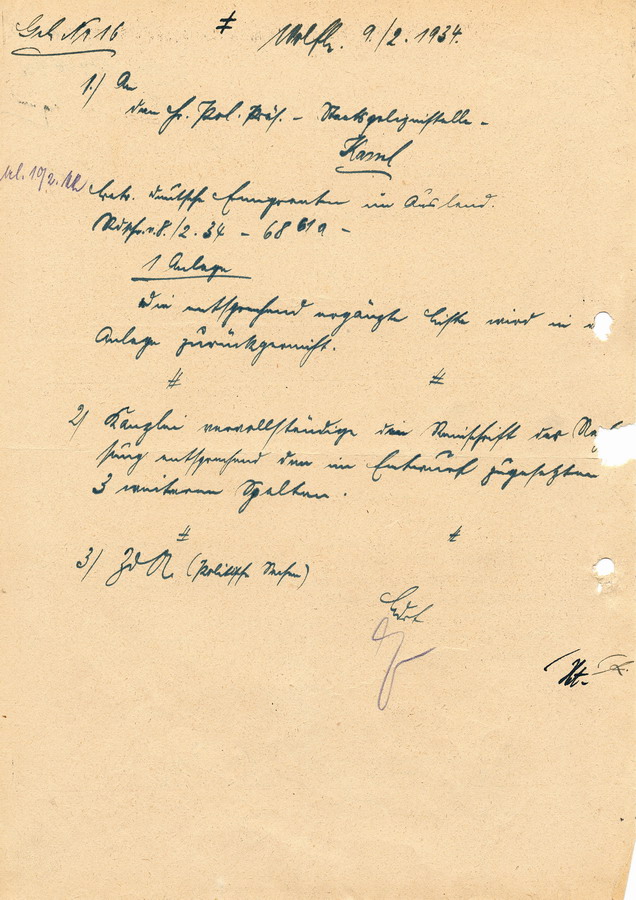 Geh. Nr. 16
Wolfh. 9./2. 1934.
1.) An
den H. Pol. Präs. - Staatspolizeistelle -
Kassel
Betr. deutsche Emigranten im Ausland.
Rdvfg. v. 8./2. 34 - 68 61a -
1 Anlage
Die entsprechend ergänzte Liste wird in d
Anlage zurückgereicht.
2) Kanzlei vervollständige den Reinschrift der
entsprechend den im Entwurf zugesetzten
3 weiteren Spalten.
3) ZdA. (Politische Sachen)
Ldrt